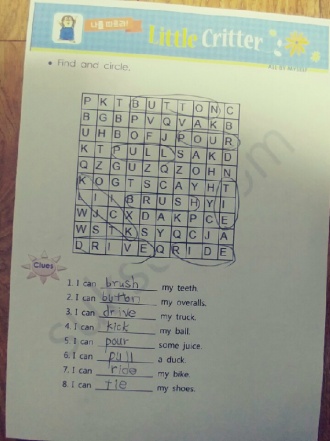 Little Critter
• Find and circle.
P K T B U T T O N C
B G B P V Q V A K B
U H B O F J P O U R
K T P U L L S A K D
Q Z G U Z Q Z O H N
K O G T S C A Y H T
I I I B R U S H Y I
W J C X D A K P C E
W S T K S Y Q C J A
D R I V E Q R I D E
Clues
1. I can brush my teeth.
2. I can button my overalls.
3. I can drive my truck.
4. I can kick my ball.
5. I can pour some juice.
6. I can pull a duck.
7. I can ride my bike.
8. I can tie my shoes.